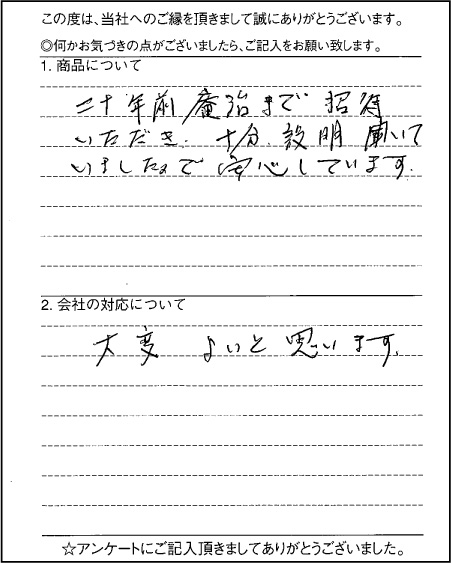 この度は、当社へのご縁を頂きまして誠にありがとうございます。
◎何かお気づきの点がございましたら、ご記入をお願い致します。
1. 商品について
二十年前 庵治まで 招待
いただき. 十分. 説明 聞いて
いましたので 安心しています.
2. 会社の対応について
大変 よいと 思います.
☆アンケートにご記入頂きましてありがとうございました。